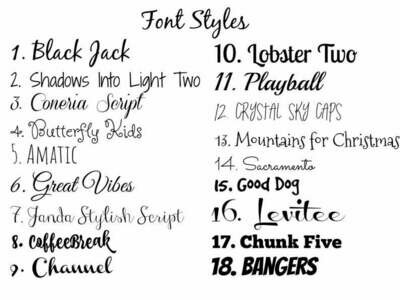 Font Styles
1. Black Jack
2. Shadows Into Light Two
3. Coneria Script
4. Butterfly Kids
5. AMATIC
6. Great Vibes
7. Janda Stylish Script
8. CoffeeBreak
9. Channel
10. Lobster Two
11. Playball
12. CRYSTAL SKY CAPS
13. Mountains for Christmas
14. Sacramento
15. Good Dog
16. Levitee
17. Chunk Five
18. BANGERS